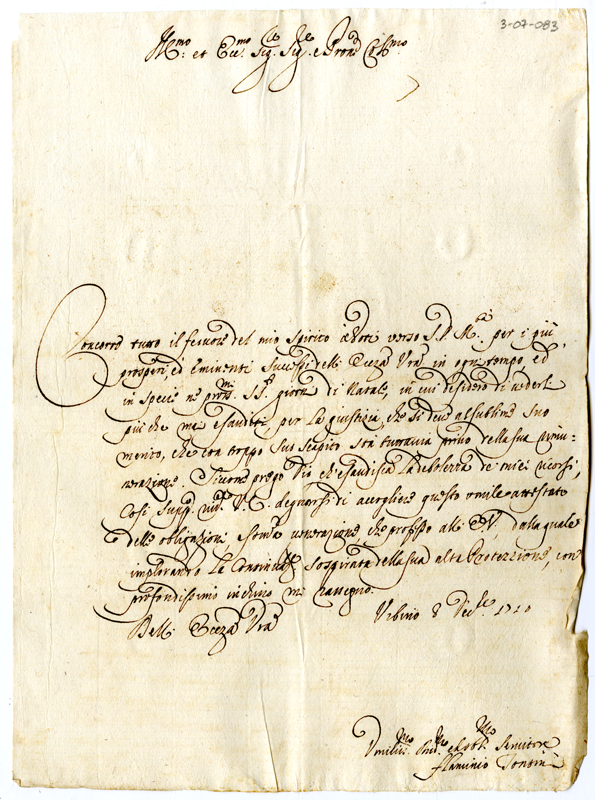 3-07-083
Ill:mo et Ecc:mo Sig: Sig: e Pron Col:mo
Concorre tutto il fervore del mio Spirito voti verso S. D. M. per i più
prosperi, ed eminenti Successi dell' Eccza Vra in ogni tempo, ed
in specie ne pross:mi SS. giorni di Natale, in cui desidero di vederli
più che mai esauditi, per la giustizia, che si deve al sublime suo
mento, che con troppo suo scapito sta tuttavia privo della sua rimu-
nerazione. prego Dio ch'esaudisca la debolezza de miei ricorsi,
Così supp. V. E. degnarsi di accogliere questo umile attestato
delle obligazioni e venerazione, che professo all' E V, dalla quale
implorando la sospirata della sua alta Protezzione, con
profondissimo inchino mi rassegno.
Dell' Eccza Vra
Urbino 8 Dec:re 1710
Umiliss:mo ed obl:mo Servitore
Flaminio